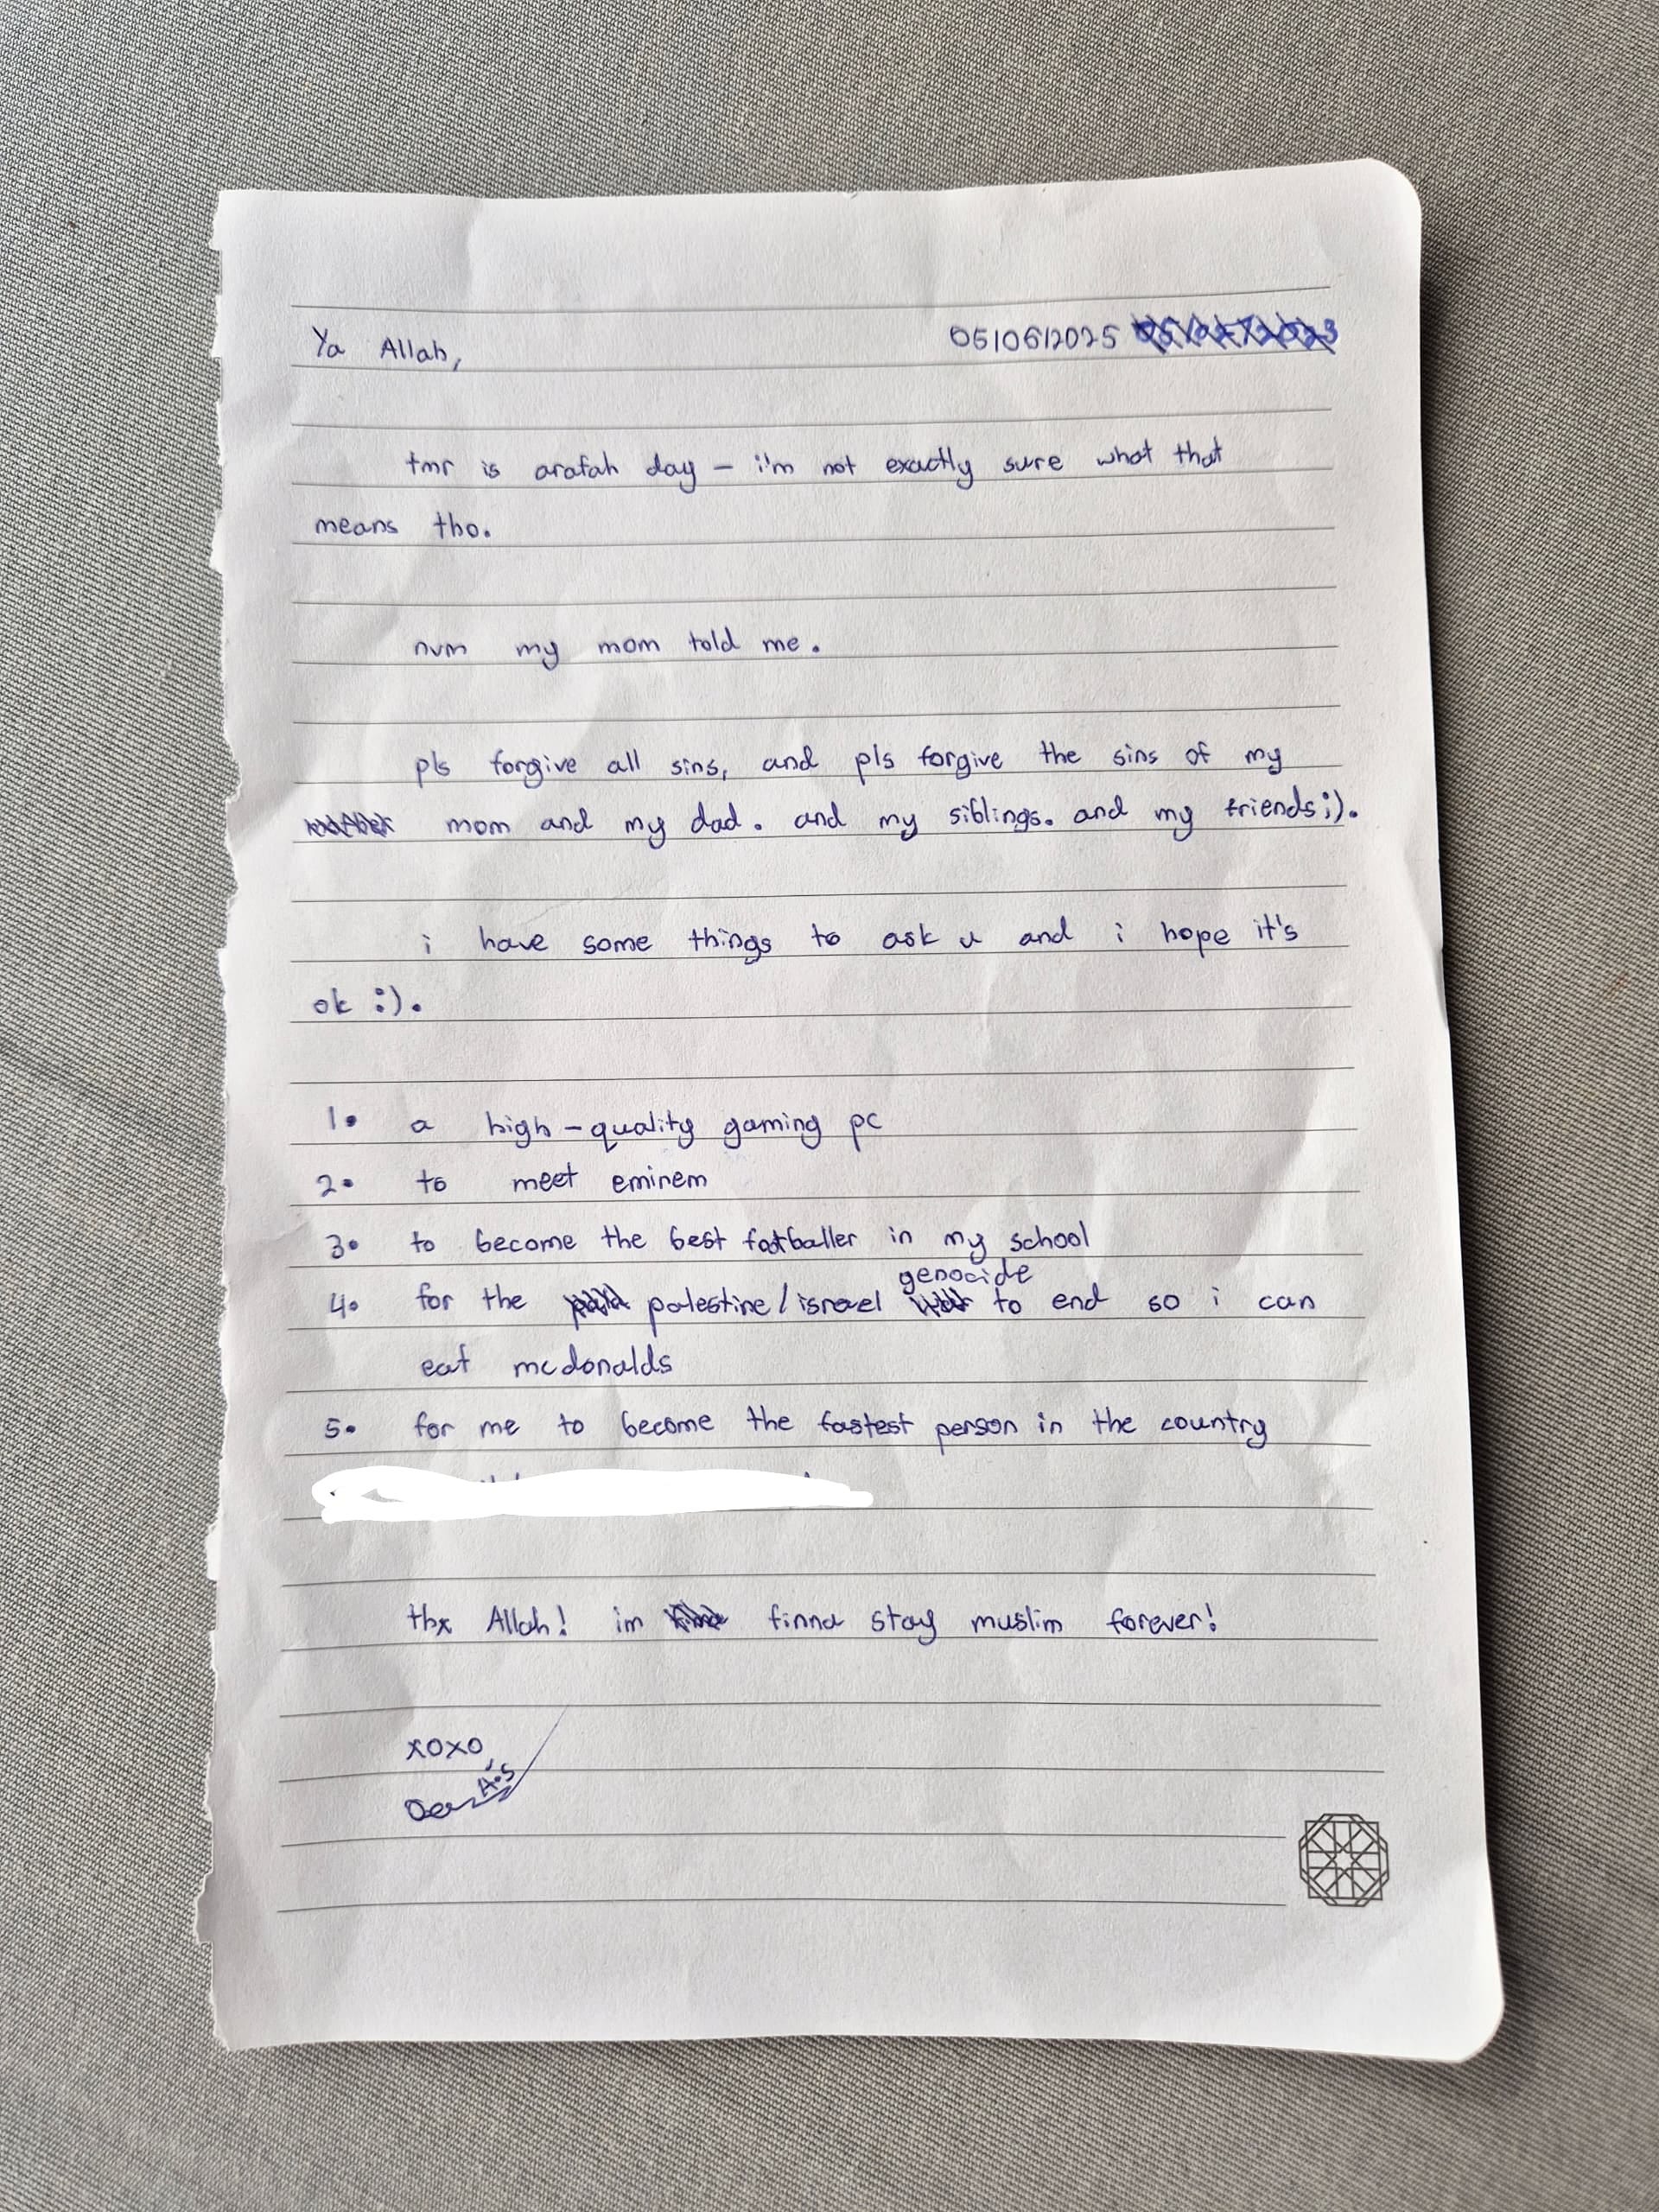 Ya Allah, 05/06/2025
tmr is arafah day – i'm not exactly sure what that
means tho.
nvm my mom told me.
pls forgive all sins, and pls forgive the sins of my
mom and my dad. and my siblings. and my friends ;).
i have some things to ask u and i hope it's
ok :).
1. a high-quality gaming pc
2. to meet eminem
3. to become the best footballer in my school
genocide
4. for the palestine/israel to end so i can
eat mcdonalds
5. for me to become the fastest person in the country
thx Allah! im finna stay muslim forever!
xoxo,
A.S